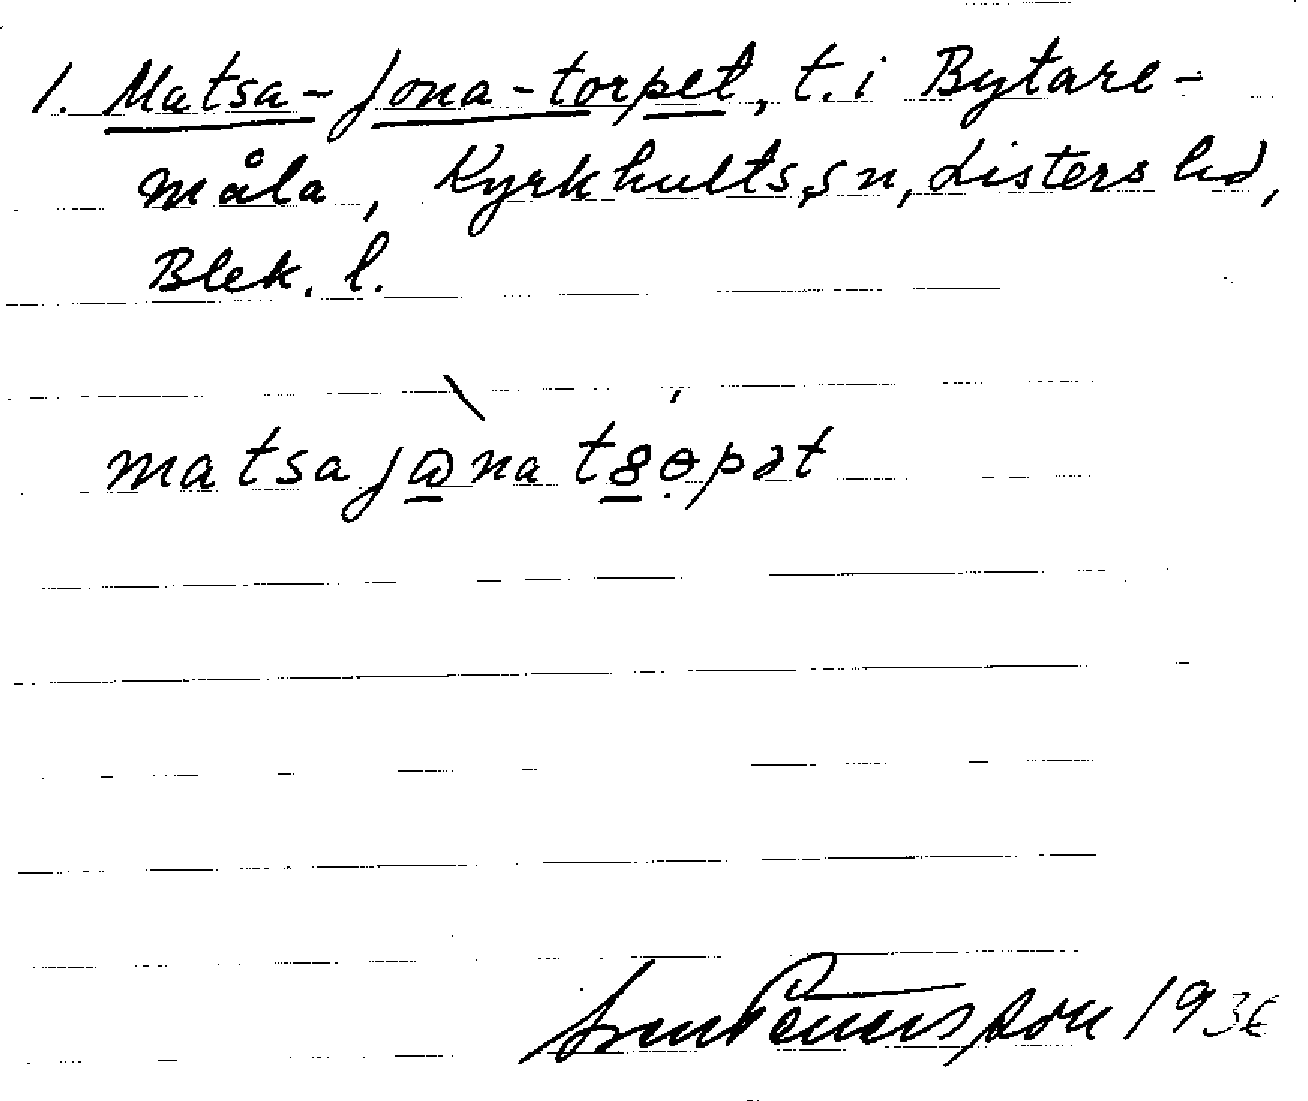 1. Matsa-Jona-torpet, t. i Bytare-
måla, Kyrkhults sn, Listers hd,
Blek. l.
matsajωna t8ɵpət
Sven Pettersson 1936